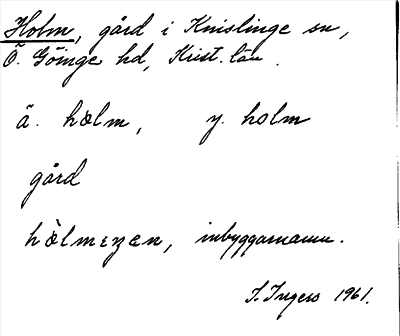 Holm, gård i Knislinge sn,
Ö. Göinge hd, Krist. län.
ä. hɔlm, y. holm
gård
hɔ̀lmɛŋən, inbyggarnamn.
I. Ingers 1961.